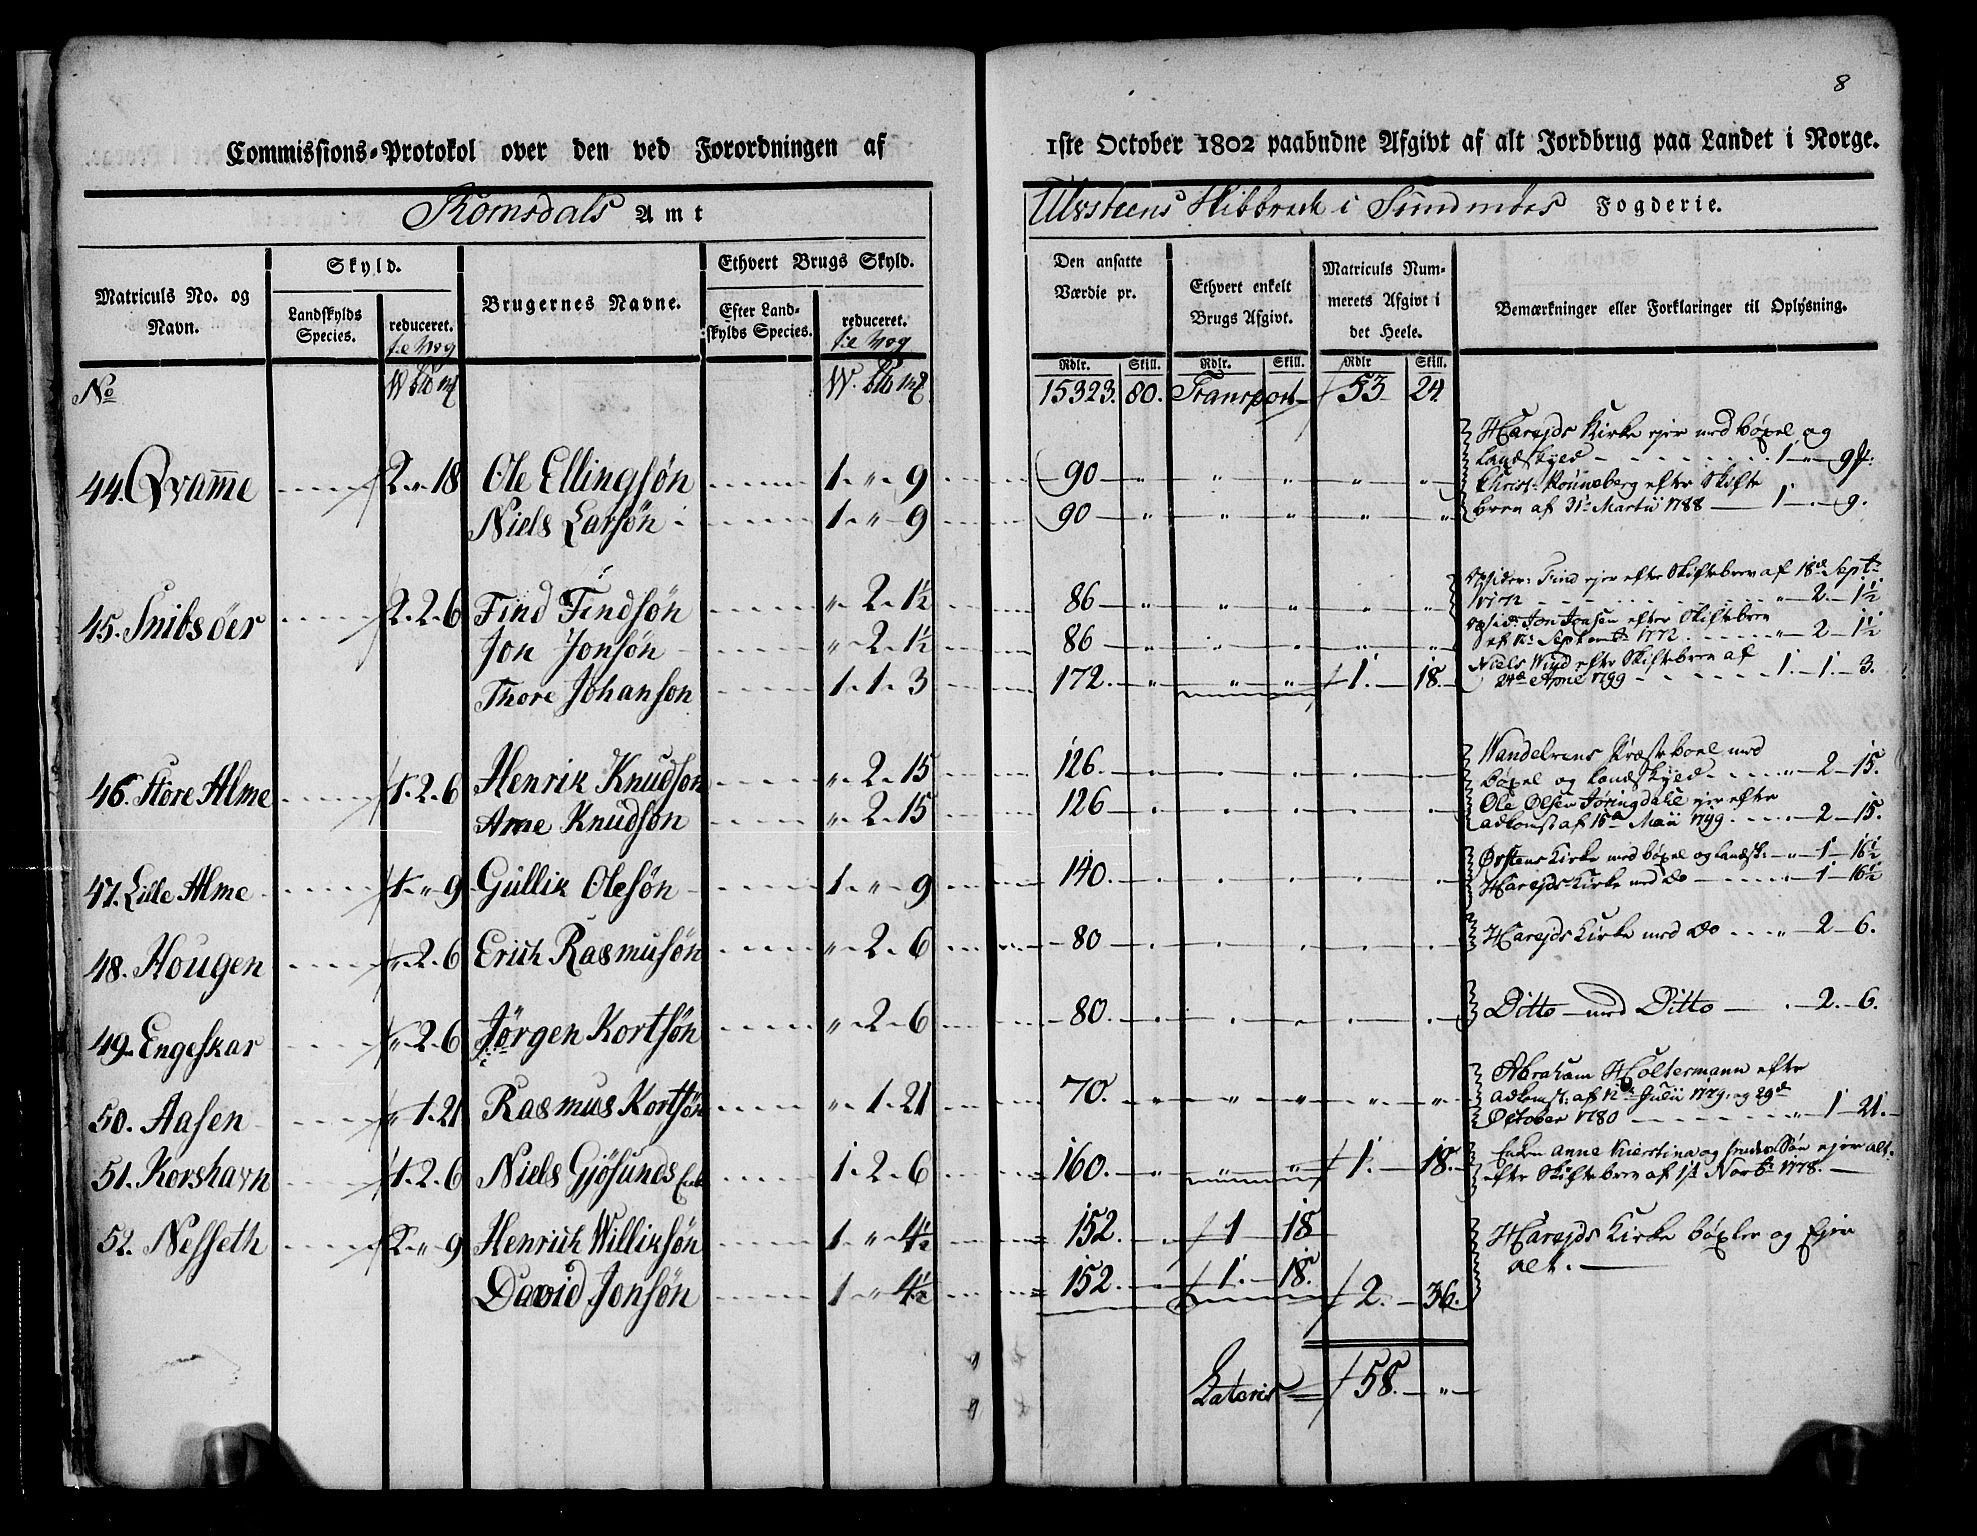 8
Commissions-Protokol over den ved Forordningen af 1ste October 1802 paabudne Afgivt af alt Jordbrug paa Landet i Norge.
Romsdals Amt
Ulvsteens Skibbrede i Sundmöes Fogderie.
Matriculs No. og Navn.
Skyld.
Landskylds Species.
reduceret.
til Vog
Brugernes Navne.
Ethvert Brugs Skyld.
Efter Landskylds Species.
reduceret.
til Vog
Den ansatte Værdie pr.
Ethvert enkelt Brugs Afgivt.
Matriculs Nummerets Afgivt i det Heele.
Bemærkninger eller Forklaringer til Oplysning.
Rdlr. Skill. Rdlr. Skill. Rdlr Skill.
No
15323. 80. Transport 53 24.
44. Qvamme 2 " 18 Ole Ellingsøn 1 " 9 90 " " " " "
Harejds Kirke ejer med böxel og
Landskyld 1 " 9
Niels Larsøn 1 " 9 90 " " " " "
Christ. Rönneberg efter Skifte
brev af 31 Martii 1788 1 . 9.
45. Snibsöer 2. 2. 6 Find Findsøn " 2. 1½ 86 " " " " "
Find ejer efter Skiftebrev af 18d Sept.
" 2. 1½
Jon Jonsøn " 2. 1½ 86 " " " " "
Jon Jonsen efter Skiftebrev
af 12 Septemb. 1772 " 2 1½
Thore Johanson 1. 1. 3 172. " " " 1. 18.
Niels Wiyd efter Skiftebrev af
24de April 1799 1. 1. 3.
46. Store Alme 1. 2. 6 Henrik Knudson " 2. 15 126.
Wandelvens Præsteboel med
böxel og Landskyld " 2 15.
Arne Knudson " 2. 15 126
Ole Olsen Jöringdahl ejer efter
adkomst af 15d Maii 1799 2 15.
47. Lille Alme 1. " 9 Gullik Olesøn 1 " 9 140.
Örstens Kirke med böxel og landsk: " 1. 16½
Harejds Kirke med Do " 1 16½
48. Hougen " 2. 6 Erich Rasmusøn " 2. 6 80
Harejds Kirke med Do " 2 6.
49. Engeskar " 2. 6 Jörgen Kortsøn " 2. 6 80.
Ditto med Ditto 2. 6.
50. Aasen " 1. 21 Rasmus Kortsøn " 1. 21 70. " " " " "
Abraham Holtermann efter
adkomst. af 12te Julii 1779. og 29d
October 1780 " 1 21.
51. Korshavn 1. 2. 6 Niels Gjösunds Enke 1. 2. 6 160. " " " 1. 18.
Enken Anne Kierstina og Sön ejer alt.
efter Skiftebrev af 1st Novbr. 1778.
52. Nesseth 2. " 9 Henrich Williksøn 1 " 4½ 152. 1 18
Harejds Kirke böxler og Ejer
alt.
David Jonsøn 1 " 4½ 152. 1. 18. 2. 36.
Lateris 58. "